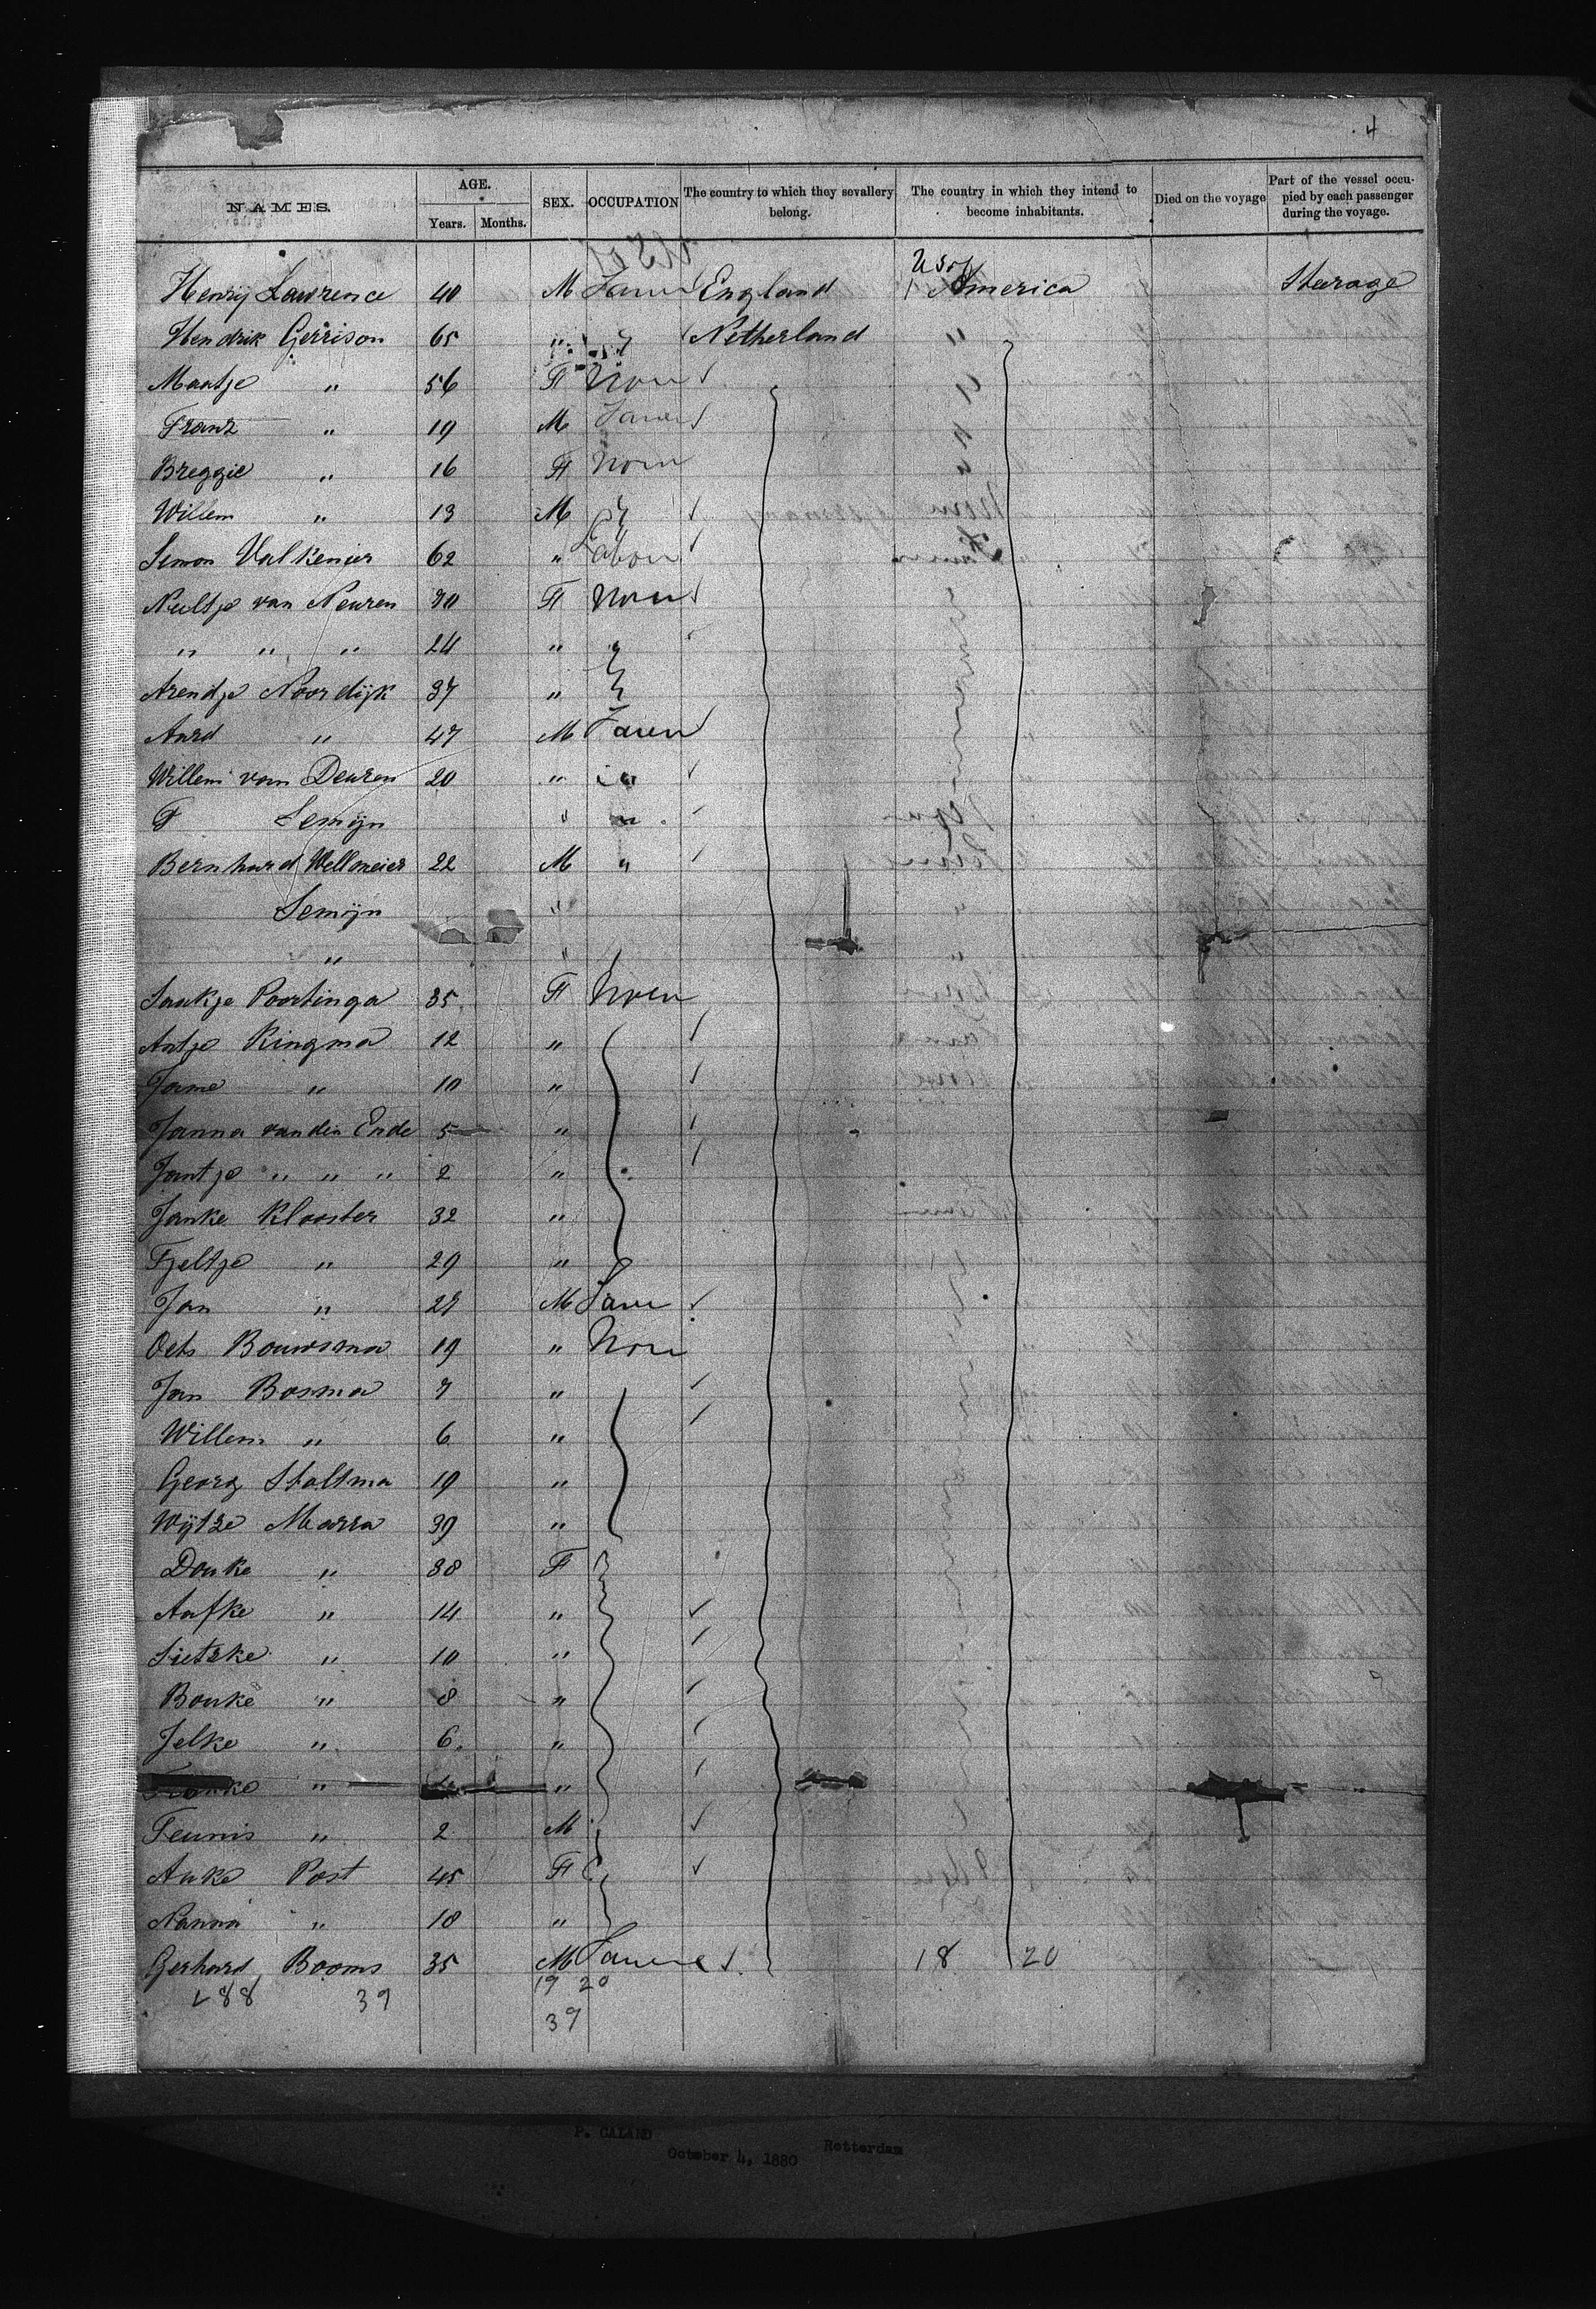 4
NAMES. AGE. Years. Months. SEX. OCCUPATION The country to which they severally belong. The country in which they intend to become inhabitants. Died on the voyage Part of the vessel occupied by each passenger during the voyage.
Henry Lawrence 40 M England America Steerage
Hendrik Gerrison 65 " Netherland "
Maatje " 56 F None "
Franz " 19 M "
Breggie " 16 F None "
Willem " 13 M
Simon Valkenier 62 "
Neeltje van Neuren 30 F None
" " " 24 "
Arendje Noordijk 37 "
Aard " 47 M
Willem van Deuren 20 " "
F Semijn " "
Bernhard Wellmeier 22 M "
Semijn "
" "
Saakje Poortinga 35 F None
Antje Kingma 12 "
Jame " 10 "
Janna van den Ende 5 "
Jantje " " " 2 "
Janke Klooster 32 "
Tjeltje " 29 "
Jan " 27 M
Oets Bouwsma 19 " None
Jan Bosma 7 "
Willem " 6 "
Georg Staltma 19 "
Wytze Marra 39 "
Douke " 38 F
Aafke " 14 "
Sietske " 10 "
Bouke " 8 "
Jelke " 6 "
" "
Teunis " 2 M
Auke Post 45 F
Nanna " 18 "
Gerhard Booms 35 M 18 20
288 39 19 20
39
P. CALAND Rotterdam
October 4, 1880